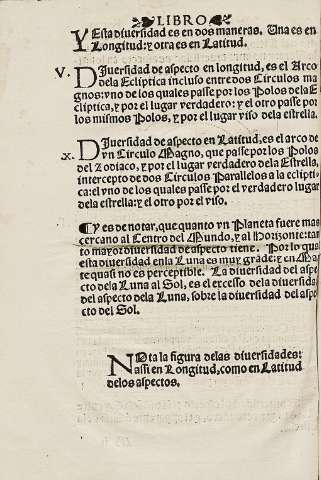 LIBRO
Y Esta diuersidad es en dos maneras. Una es en
Longitud: y otra es en Latitud.
V. DIuersidad de aspecto en longitud, es el Arco
dela Ecliptica incluso entre dos Circulos ma
gnos: vno de los quales passe por los Polos dela E
cliptica, y por el lugar verdadero: y el otro passe por
los mismos Polos, y por el lugar viso dela estrella.
X. DIuersidad de aspecto en Latitud, es el arco de
vn Circulo Magno, que passe por los Polos
del Zodiaco, y por el lugar verdadero dela Estrella,
intercepto de dos Circulos Parallelos a la eclipti-
ca: el vno de los quales passe por el verdadero lugar
dela estrella: y el otro por el viso.
¶ Y es de notar, que quanto vn Planeta fuere mas
cercano al Centro del Mundo, y al Horizonte: tan
to mayor diuersidad de aspecto tiene. Por lo qual
esta diuersidad en la Luna es muy grãde: y en Mar
te quasi no es perceptible. La diuersidad del aspe
cto dela Luna al Sol, es el excesso dela diuersidad
del aspecto dela Luna, sobre la diuersidad del aspe
cto del Sol.
NOta la figura delas diuersidades:
assi en Longitud, como en Latitud
delos aspectos.